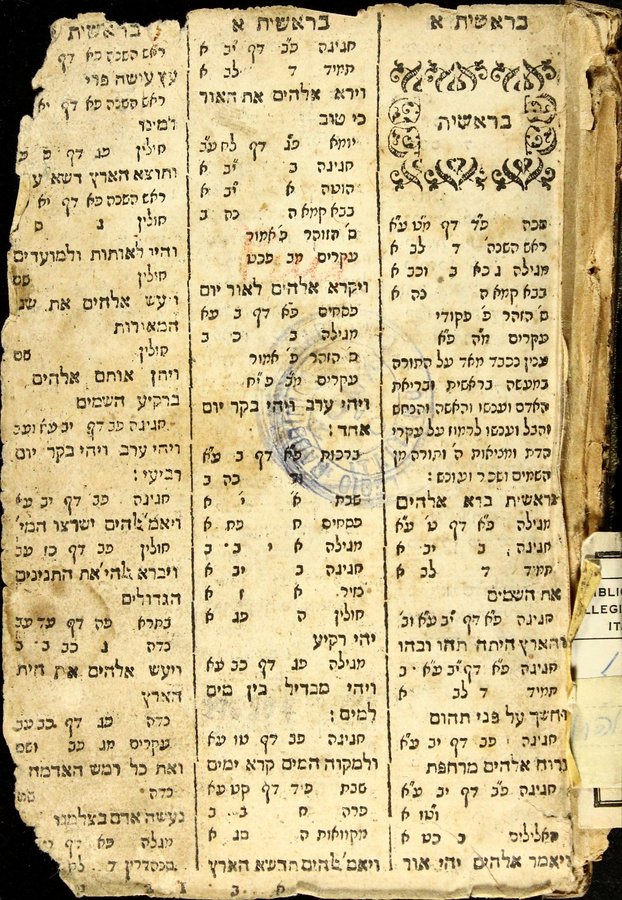 בראשית א
בראשית
סכה פ״ד דף מט ע״א
ראש השכה ד לב א
מגילה נ כא ב וכב א
בבא קמא ה כה א
ס׳ הזהר פ׳ פקודי
עקרים מ״ה פ״א
ענין נכבד מאד על התורה
במעשה בראשית ובריאת
האדם ועכשו והאשה והנחש
והבל ועכשו לרמוז על עקרי
הדת ומציאות ה׳ ותורה מן
השמים ושכר ועוכש :
בראשית ברא אלהים
מגילה פ״א דף ט׳ ע״א
חגיגה ב יב א
תמיד ד לב א
את השמים
חגיגה פ״א דף י״ב ע״א וב׳
והארץ היתה תהו ובהו
חגיגה פ״א דף י״ב ע״א ב
תמיד ד לב א
וחשך על פני תהום
חגיגה פב דף יב ע״א
ורוח אלהים מרחפת
חגיגה פ״ב דף יב ע״א
וטו א
ויאמר אלהים יהי אור
בראשית א
חגיגה פ״ב דף יב א
תמיד ד לב א
וירא אלהים את האור
כי טוב
יומא פג דף לח ע״ב
חגיגה ב י״ב א
הוטה א י״ב א
בבא קמא ה כה ב
ס׳ הזוהר פ׳ אמור
עקרים מב פכט
ויקרא אלהים לאור יום
פסחים פ״א דף ב ע״א
מגילה ב כ ב
ס׳ הזוהר פ׳ אמור
עקרים מ״ב פי״ח
ויהי ערב ויהי בקר יום
אחד :
ברכות פ״א דף ב ע״א
כה ב
שבת א י׳ א
פסחים ח פח א
מגילה א י ב
חגיגה ב יב א
נזיר א ז א
חולין ה פג א
יהי רקיע
מגילה פג דף כב עא
ויהי מבדיל בין מים
למים :
חגיגה פב דף טו עא
ולמקוה המים קרא ימים
שבת פיד דף קט עא
פרה ח ב ב
מקואות ה פג א
ויאמ׳ אלהים תדשא הארץ
בראשית
ראש השכה פ״א דף
עץ עושה פרי
ראש השכה פא דף יא
למינו
חולין פג דף ס
ותוצא הארץ דשא ע
ראש השכה פא דף יא
חולין נ ס
והיו לאותות ולמועדים
חולין שם
ויעש אלהים את שני
המאורות
חולין שם
ויתן אותם אלהים
ברקיע השמים
חגיגה פב דף יב עא ועב
ויהי ערב ויהי בקר יום
רביעי :
חגיגה פב דף יב עא
ויאמ׳ אלהים ישרצו המי׳
חולין פב דף כז עב
ויברא אלהי׳ את התנינים
הגדולים
בתרא פה דף עד עב
כדה נ כב ב
ויעש אלהים את חית
הארץ
כדה פג דף כב עב
עקרים מג פב ושם
ואת כל רמש האדמה
כדה שם
נעשה אדם בצלמנו
מגלה פא דף ט
סכהדרין ד ל